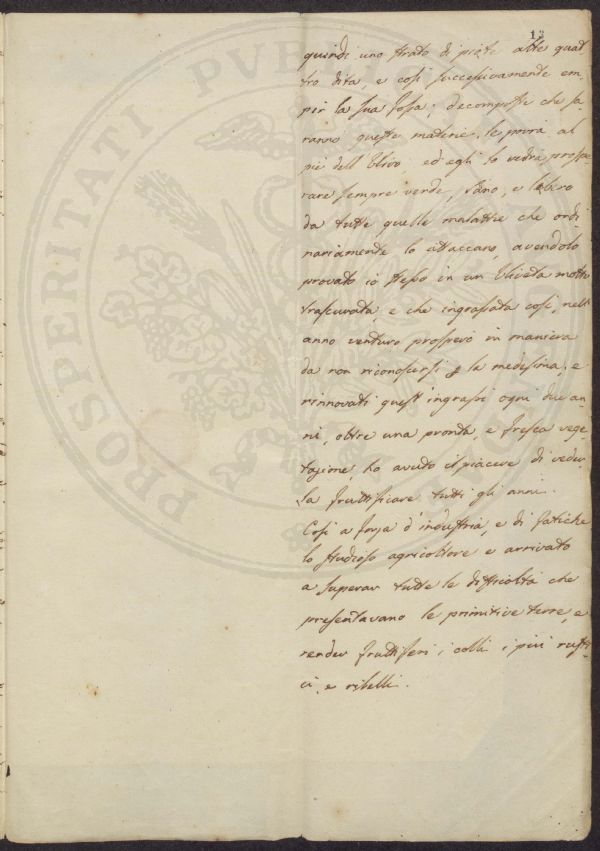 13
quindi uno strato di piote alte quat
tro dita, e così successivamente em,
pir la sua fossa; decomposte che sa
ranno queste materie, le porrà al
piè dell'Ulivo, ed egli lo vedrà prospe,
rare sempre verde, sano, e libero
da tutte quelle malattie che ordi
nariamente lo attaccano, avendolo
provato io stesso in un Uliveta molto
trascurata, e che ingrassata così, nell'
anno venturo prosperò in maniera
da non riconoscersi p la medesima, e
rinnovati quest'ingrassi ogni due an,
ni, oltre una pronta, e fresca vege,
tazione, ho avuto il piacere di veder,
la fruttificare tutti gli anni.
Così a forza d'industria, e di fatiche
lo studioso agricoltore e arrivato
a superar tutte le difficoltà che
presentavano le primitive terre, e
render fruttiferi i colli i più rusti,
ci, e ribelli.
PROSPERITATI PVBL